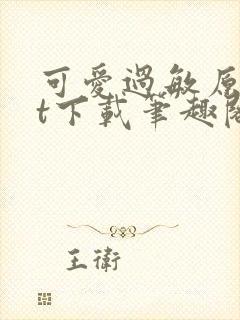 可愛過敏原
t下載筆趣閣
王衛